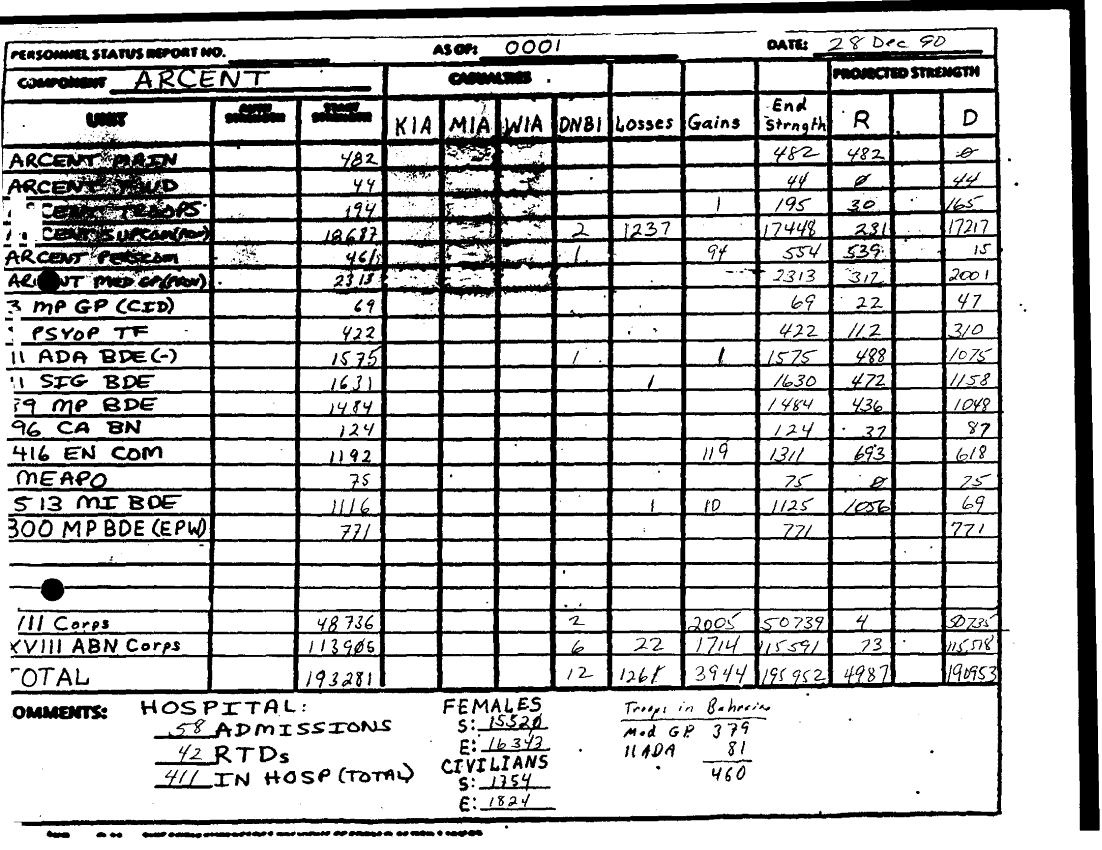 PERSONNEL STATUS REPORT NO. AS OF: 0001 DATE: 28 Dec 90
COMPONENT ARCENT CASUALTIES PROJECTED STRENGTH
UNIT STRENGTH START STRENGTH KIA MIA WIA DNBI Losses Gains End Strngth R D
ARCENT MAIN 482 482 482 ø
ARCENT 44 44 ø 44
CENT TROOPS 194 1 195 30 165
CENT SUPCOM(PROV) 18687 2 1237 17448 231 17217
ARCENT PERSCOM 461 1 94 554 539 15
ARCENT MED GP(PROV) 2313 2313 312 2001
3 MP GP (CID) 69 69 22 47
PSYOP TF 422 422 112 310
11 ADA BDE(-) 1575 1 1 1575 488 1075
11 SIG BDE 1631 1 1630 472 1158
89 MP BDE 1484 1484 436 1048
96 CA BN 124 124 37 87
416 EN COM 1192 119 1311 693 618
MEAPO 75 75 ø 75
513 MI BDE 1116 1 10 1125 1056 69
300 MP BDE (EPW) 771 771 771
VIII Corps 48736 2 2005 50739 4 50735
XVIII ABN Corps 113905 6 22 1714 115591 73 115518
TOTAL 193281 12 1261 3944 195952 4987 190953
OMMENTS: HOSPITAL:
58 ADMISSIONS
42 RTDs
411 IN HOSP (TOTAL)
FEMALES
S: 15520
E: 16343
CIVILIANS
S: 1754
E: 1824
Troops in Bahrain
Med GP 379
11 ADA 81
460